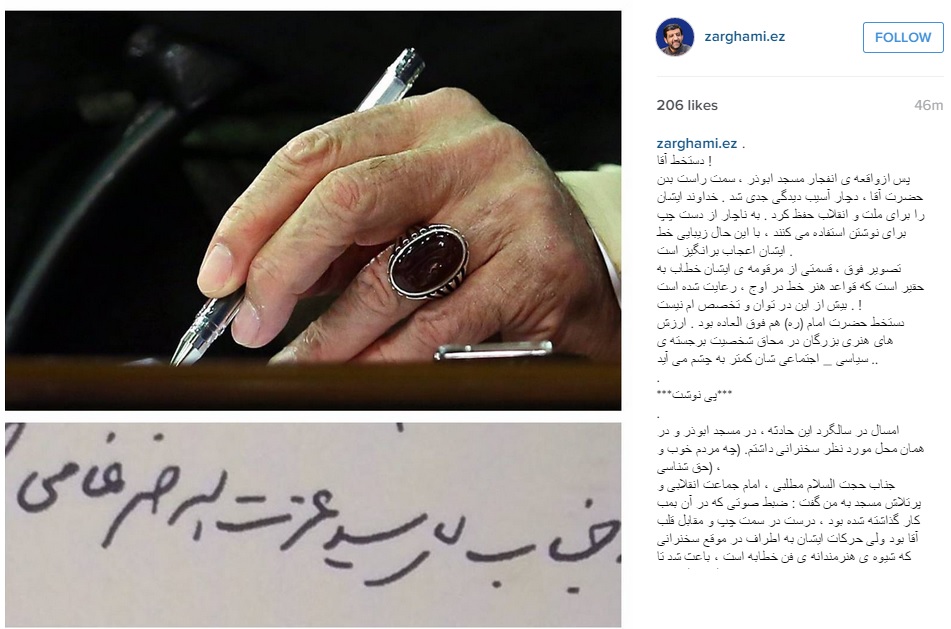 zarghami.ez
FOLLOW
206 likes
46m
zarghami.ez .
دستخط آقا !
پس ازواقعه ی انفجار مسجد ابوذر ، سمت راست بدن
حضرت آقا ، دچار آسیب دیدگی جدی شد . خداوند ایشان
را برای ملت و انقلاب حفظ کرد . به ناچار از دست چپ
برای نوشتن استفاده می کنند ، با این حال زیبایی خط
ایشان اعجاب برانگیز است .
تصویر فوق ، قسمتی از مرقومه ی ایشان خطاب به
حقیر است که قواعد هنر خط در اوج ، رعایت شده است
بیش از این در توان و تخصص ام نیست . !
دستخط حضرت امام (ره) هم فوق العاده بود . ارزش
های هنری بزرگان در محاق شخصیت برجسته ی
سیاسی _ اجتماعی شان کمتر به چشم می آید ..
.
***پی نوشت***
.
امسال در سالگرد این حادثه ، در مسجد ابوذر و در
همان محل مورد نظر سخنرانی داشتم. (چه مردم خوب و
حق شناسی) ،
جناب حجت السلام مطلبی ، امام جماعت انقلابی و
پرتلاش مسجد به من گفت : ضبط صوتی که در آن بمب
کار گذاشته شده بود ، درست در سمت چپ و مقابل قلب
آقا بود ولی حرکات ایشان به اطراف در موقع سخنرانی
که شیوه ی هنرمندانه ی فن خطابه است ، باعث شد تا
جناب آقای سید عزت اله ضرغامی